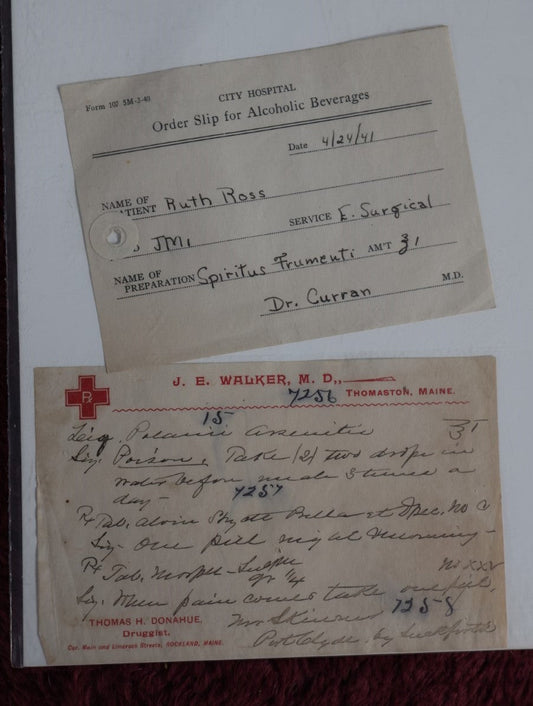 Form 107 5M-2-40
CITY HOSPITAL
Order Slip for Alcoholic Beverages
Date 4/24/41
NAME OF
PATIENT Ruth Ross
JM1 SERVICE E. Surgical
NAME OF
PREPARATION Spiritus Frumenti AM'T ʒ1
Dr. Curran M.D.
J. E. WALKER, M. D.,
7256 THOMASTON, MAINE.
15
ʒ1
Sig. Poison. Take (2) two drops in
water before meals 3 times a
day—
7257
Rx Tab. Aloin Bella et No
Sig One pill night morning—
Rx Tab. Morph- Sulph
gr 1/4 No XXV
Sig. When pain comes take one pill.
Mr Skinner 7258
THOMAS H. DONAHUE,
Druggist.
Port Clyde, by
Cor. Main and Limerock Streets, ROCKLAND, MAINE.